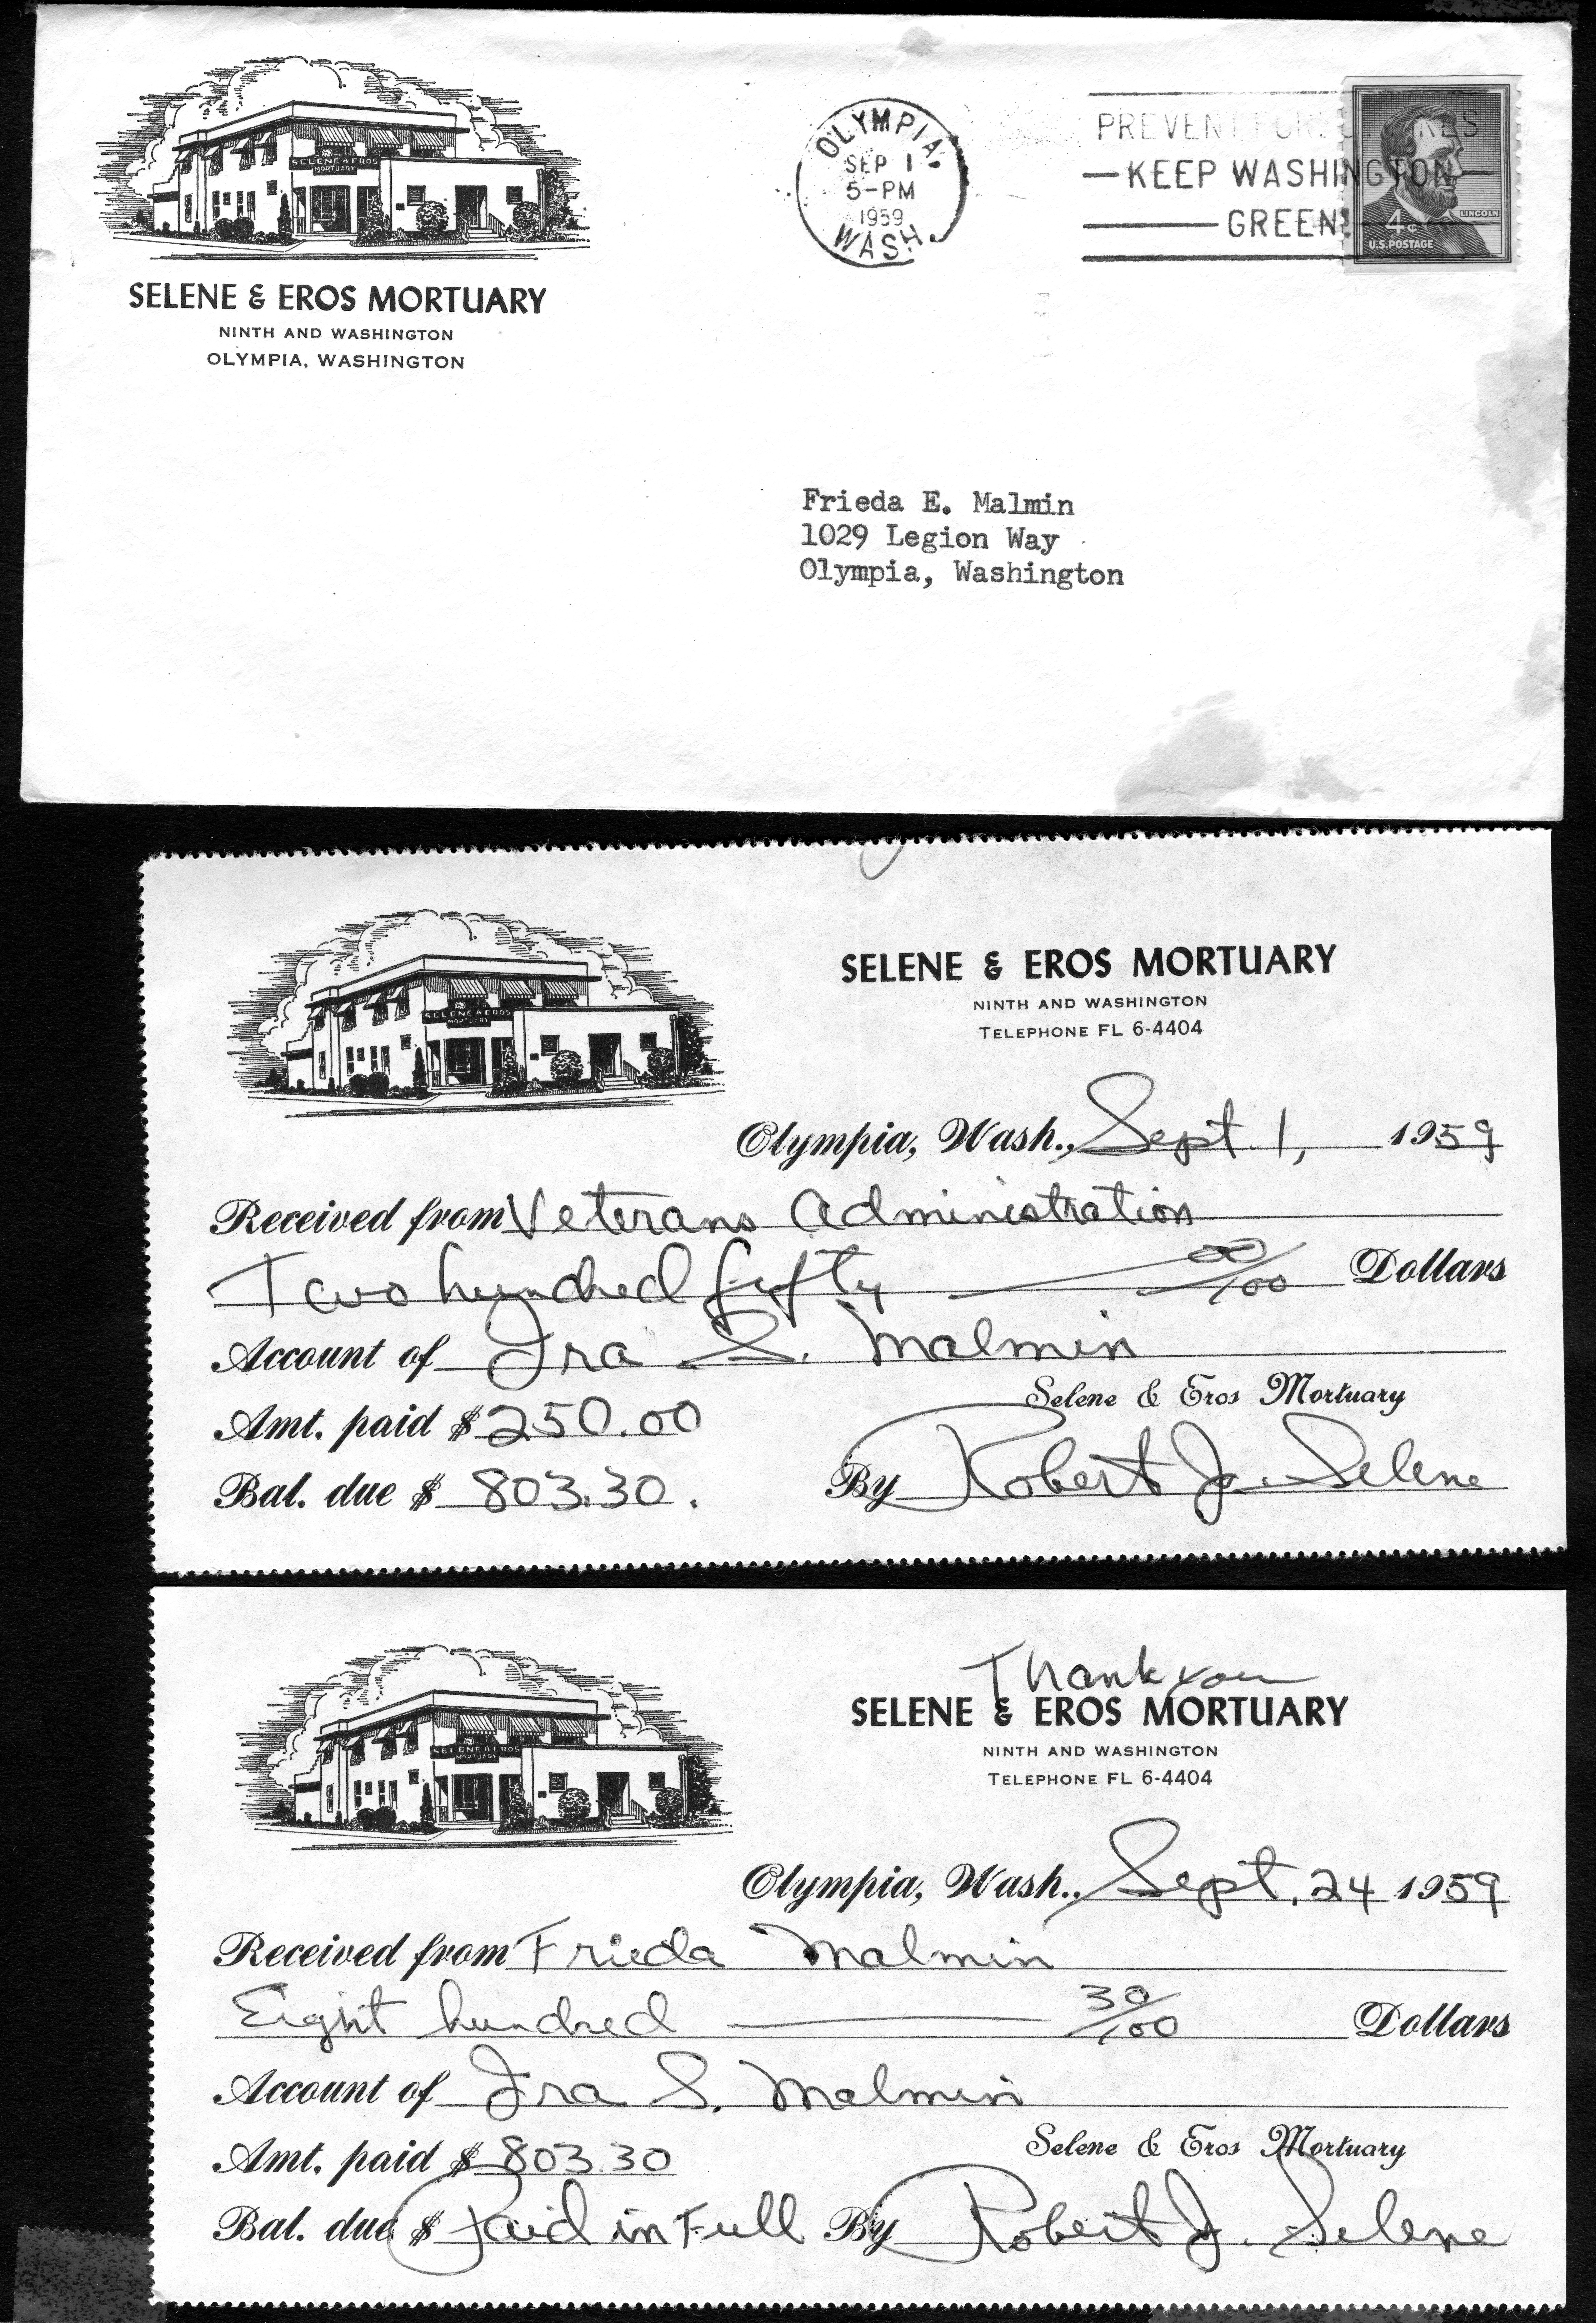 SELENE & EROS
MORTUARY
SELENE & EROS MORTUARY
NINTH AND WASHINGTON
OLYMPIA, WASHINGTON
OLYMPIA,
SEP 1
5-PM
1959
WASH.
PREVENT
KEEP WASHINGTON
GREEN!
LINCOLN
4¢
U.S.POSTAGE
Frieda E. Malmin
1029 Legion Way
Olympia, Washington
SELENE & EROS
MORTUARY
SELENE & EROS MORTUARY
NINTH AND WASHINGTON
TELEPHONE FL 6-4404
Olympia, Wash., Sept. 1, 1959
Received from Veterans Administration
Two hundred fifty 00/100 Dollars
Account of Ira S. Malmin
Selene & Eros Mortuary
Amt. paid $ 250.00
Bal. due $ 803.30. By Robert J. Selene
SELENE & EROS
MORTUARY
Thank you
SELENE & EROS MORTUARY
NINTH AND WASHINGTON
TELEPHONE FL 6-4404
Olympia, Wash., Sept. 24 1959
Received from Frieda Malmin
Eight hundred 30/100 Dollars
Account of Ira S. Malmin
Selene & Eros Mortuary
Amt. paid $ 803.30
Bal. due $ Paid in Full By Robert J. Selene